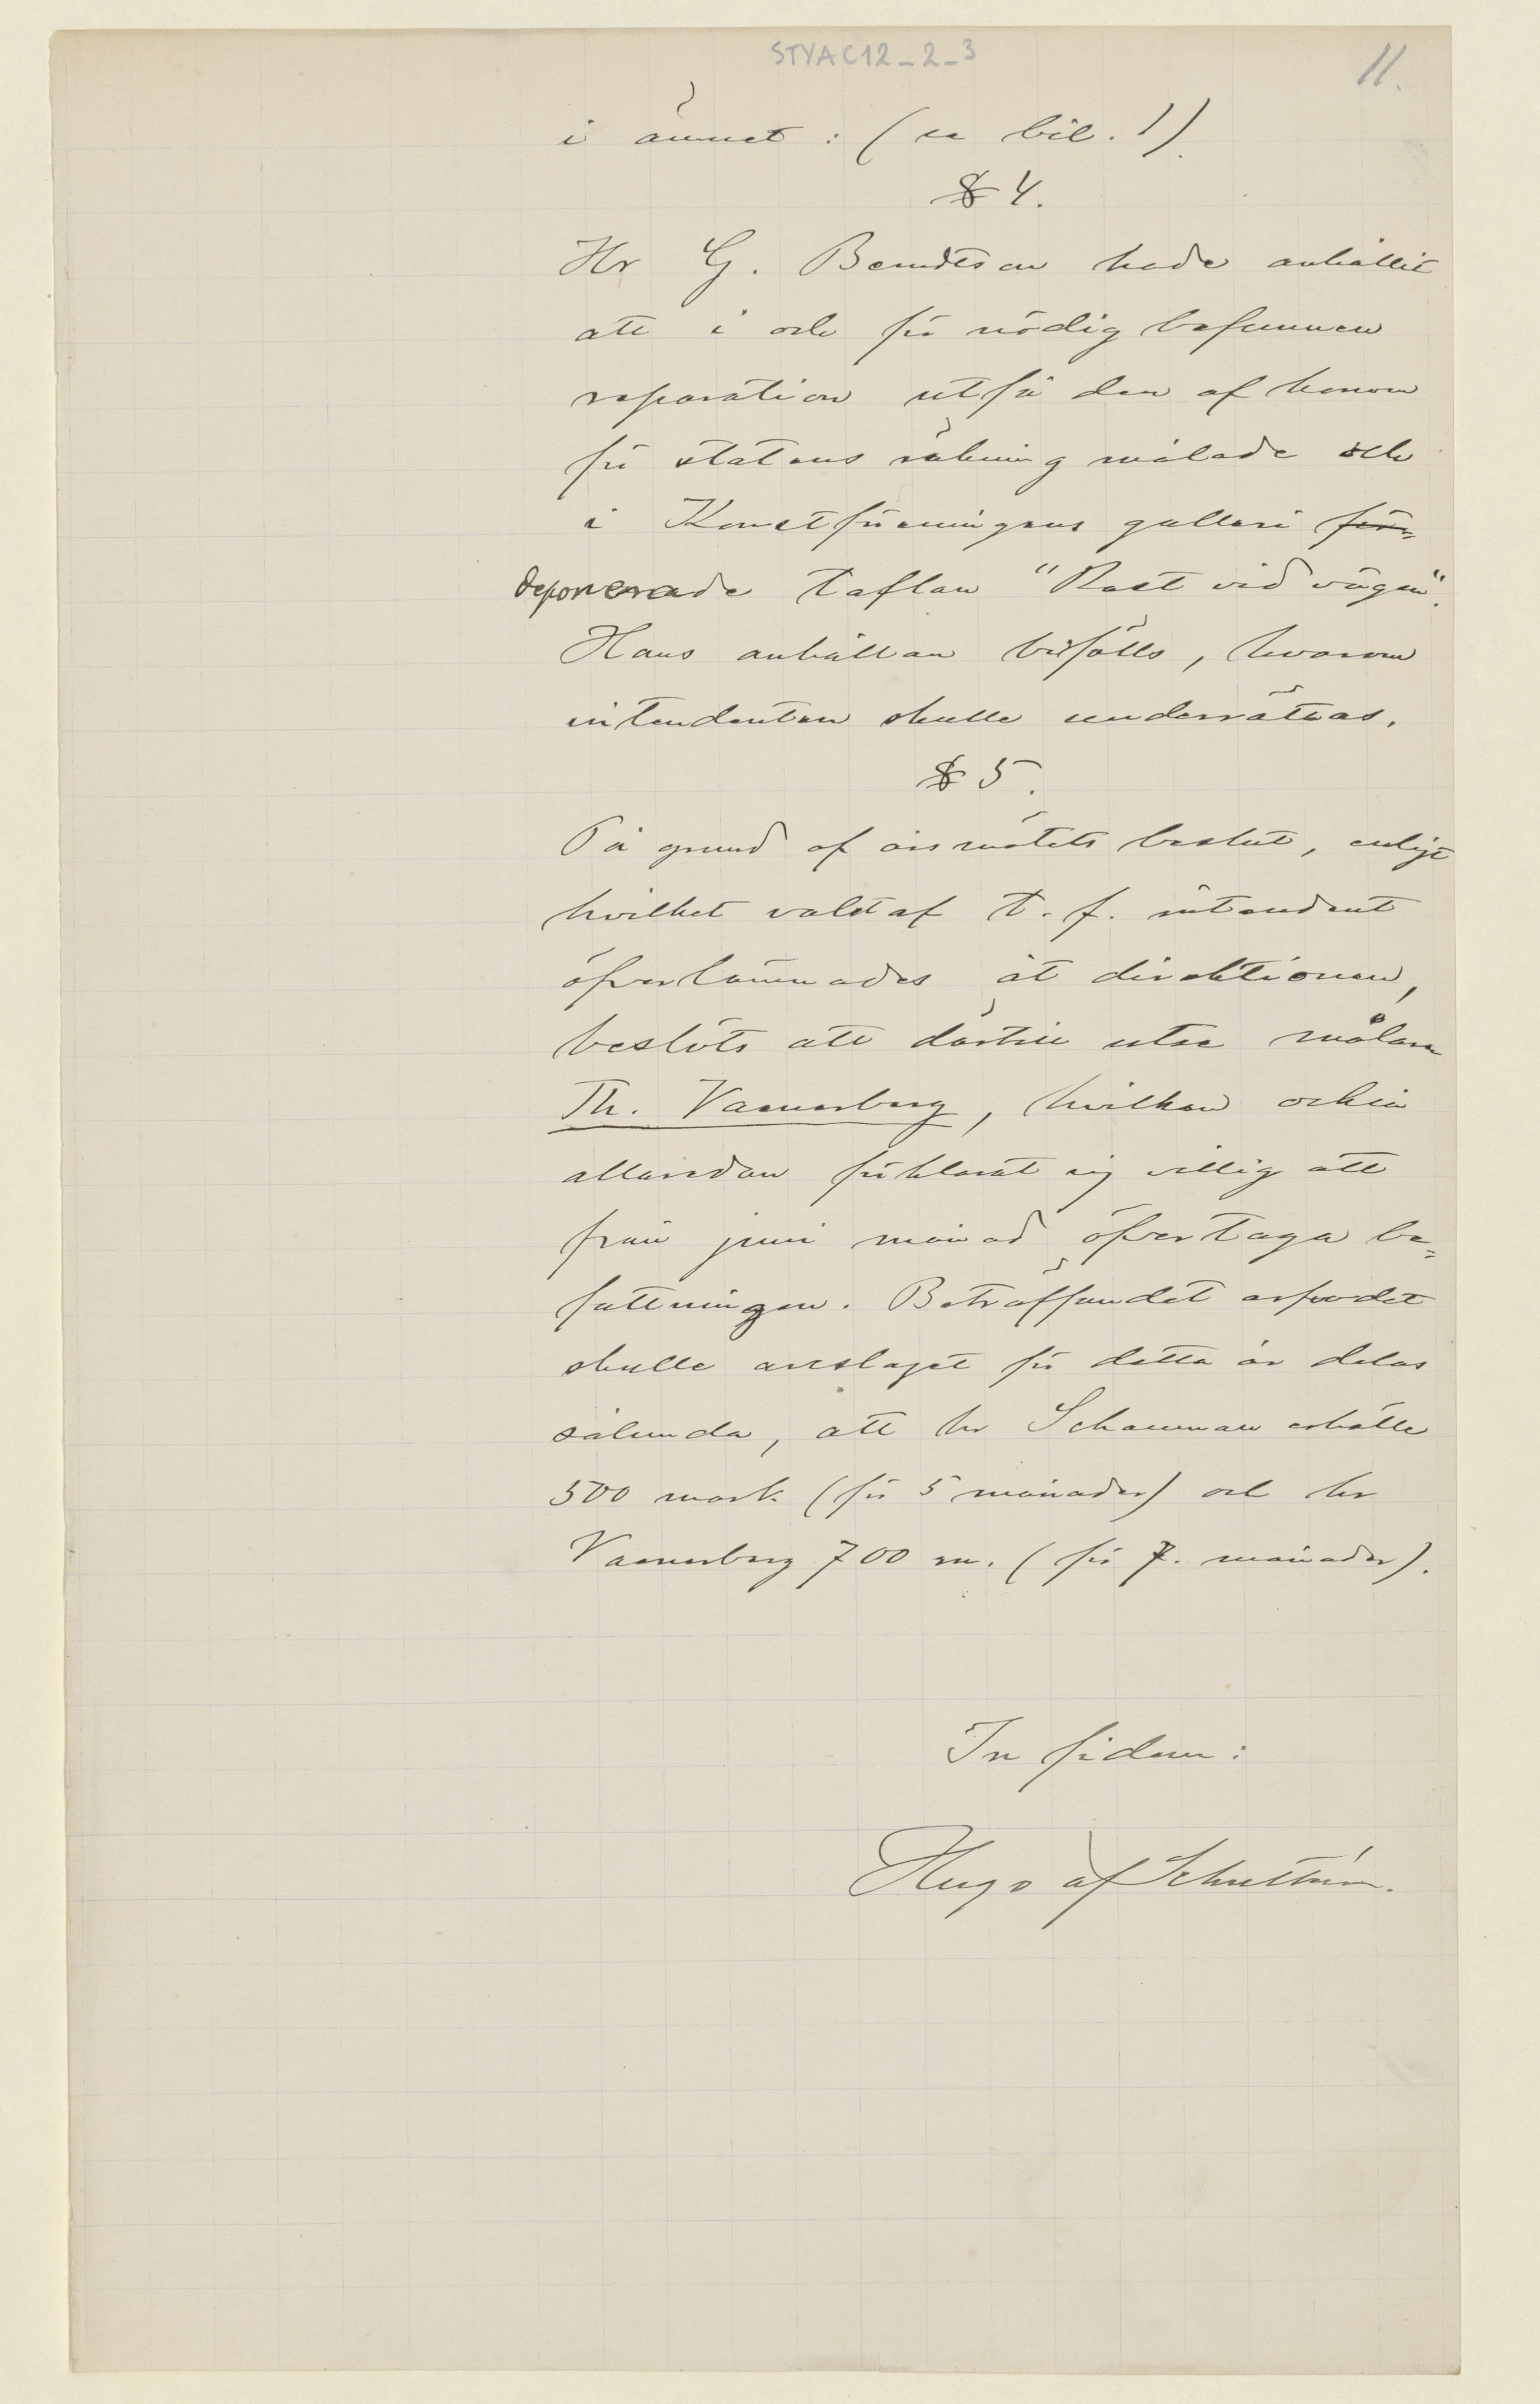 STYAC12_2_3
11.
i ämnet : (se bil. 1).
§ 4.
Hr G. Berndtson hade anhållit
att i och för nödig befunnen
reparation utfå den af honom
för statens räkning målade och
i Konstföreningens galleri för=
deponerade taflan "Rast vid vägen".
Hans anhållan bifölls, hvarom
intendenten skulle underrättas.
§ 5.
På grund af årsmötets beslut, enligt
hvilket valet af t. f. intendent
öfverlämnades åt direktionen,
beslöts att därtill utse målaren
Th. Vaenerberg, hvilken ock
alleredan förklarat sig villig att
från juni månad öfvertaga be=
fattningen. Beträffandet arfvodet
skulle anslaget för detta år delas
sålunda, att hr Schauman erhölle
500 mark (för 5 månader) och hr
Vaenerberg 700 m. (för 7. månader).
In fidem:
Hugo af Schultén.